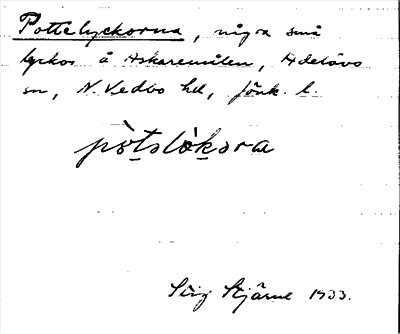 Pottelyckorna, några små
lyckor å Askaremålen, Adelövs
sn, N. Vedbo hd, Jönk. l.
pòtslòkora
Stig Stjärne 1933.